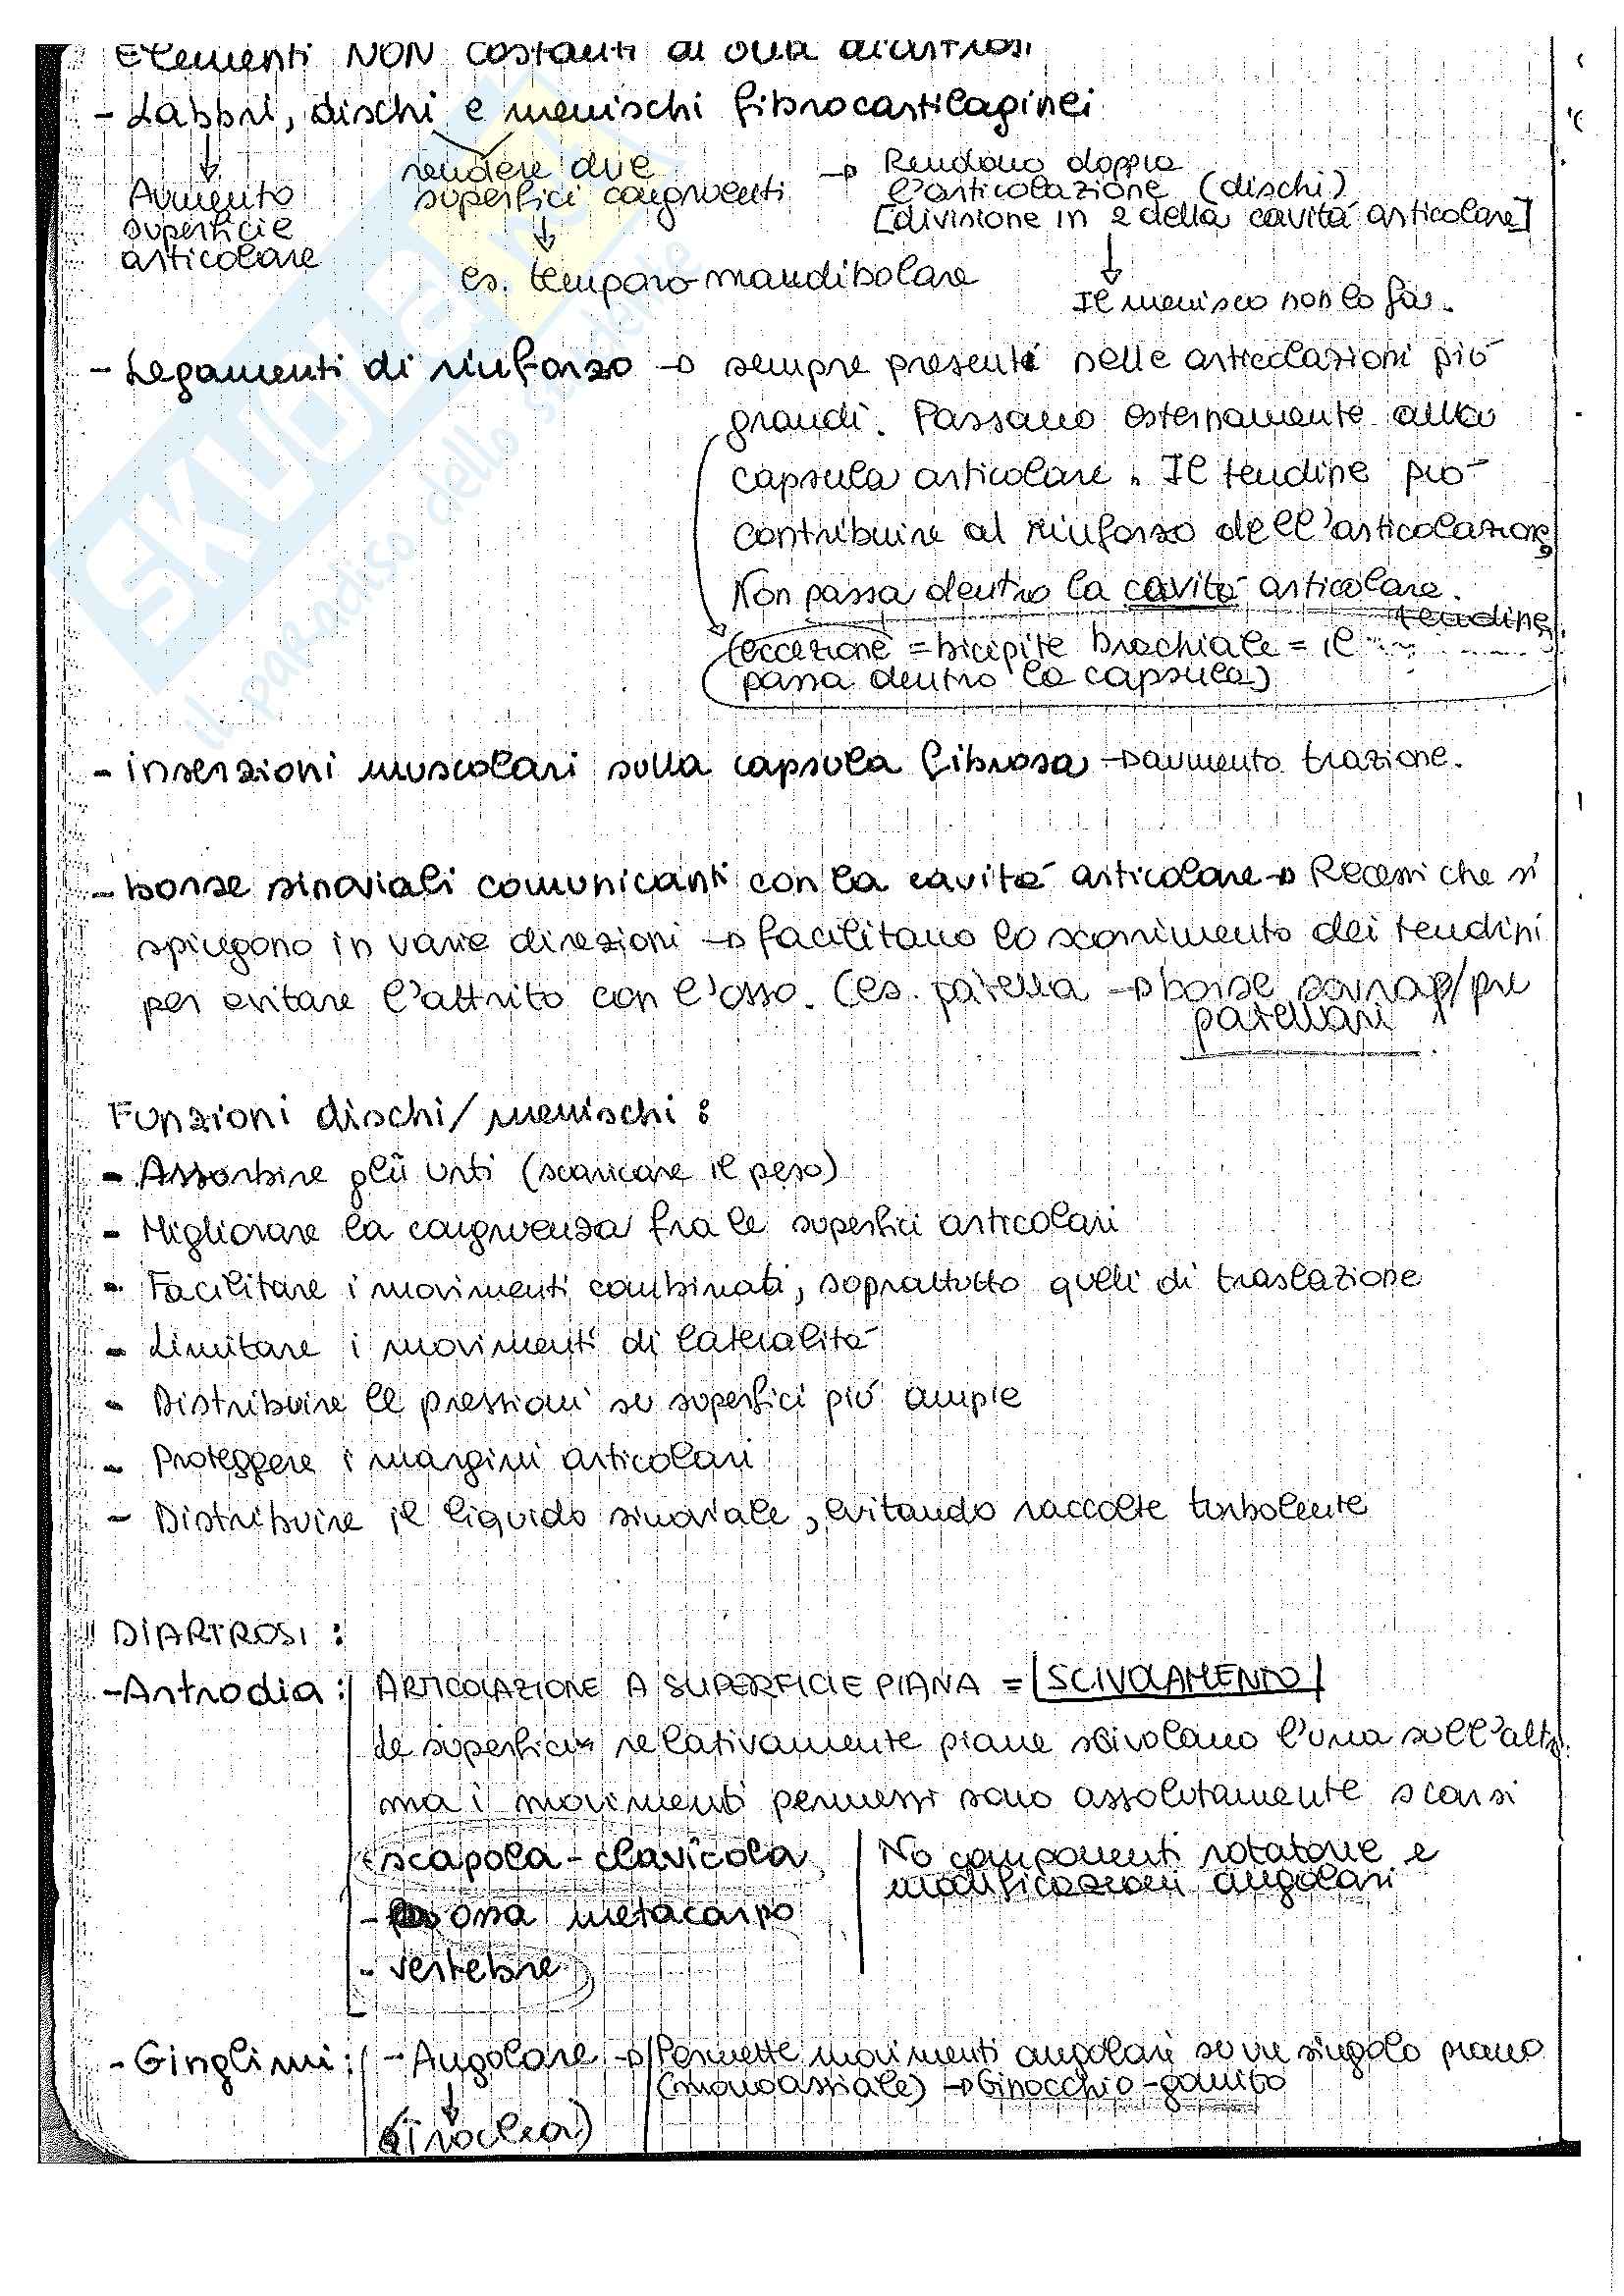 Elementi NON costanti di una diartrosi
- Labbri, dischi e menischi fibrocartilaginei
Aumento
superficie
articolare
rendere due
superfici congruenti
es. temporo-mandibolare
→ Rendono doppia
l'articolazione (dischi)
[divisione in 2 della cavità articolare]
Il menisco non lo fa.
- Legamenti di rinforzo → sempre presenti nelle articolazioni più
grandi. Passano esternamente alla
capsula articolare. Il tendine può
contribuire al rinforzo dell'articolazione,
Non passa dentro la cavità articolare.
(eccezione = bicipite brachiale = il tendine
passa dentro la capsula)
- inserzioni muscolari sulla capsula fibrosa → aumento trazione.
- borse sinoviali comunicanti con la cavità articolare → Recessi che si
spingono in varie direzioni → facilitano lo scorrimento dei tendini
per evitare l'attrito con l'osso. (es. patella → borse sovrap/pre
patellari
Funzioni dischi/menischi :
- Assorbire gli urti (scaricare il peso)
- Migliorare la congruenza fra le superfici articolari
- Facilitare i movimenti combinati, soprattutto quelli di traslazione
- Limitare i movimenti di lateralità
- Distribuire le pressioni su superfici più ampie
- Proteggere i margini articolari
- Distribuire il liquido sinoviale, evitando raccolte turbolente
DIARTROSI :
- Artrodia : ARTICOLAZIONE A SUPERFICIE PIANA = SCIVOLAMENTO
Le superfici relativamente piane scivolano l'una sull'altra
ma i movimenti permessi sono assolutamente scarsi
scapola - clavicola
- ossa metacarpo
- vertebre
No componenti rotatorie e
modificazioni angolari
- Ginglimi : - Angolare → Permette movimenti angolari su un singolo piano
(monoassiale) → Ginocchio - gomito
(Troclea)
SKUOLA
il paradiso dello studente